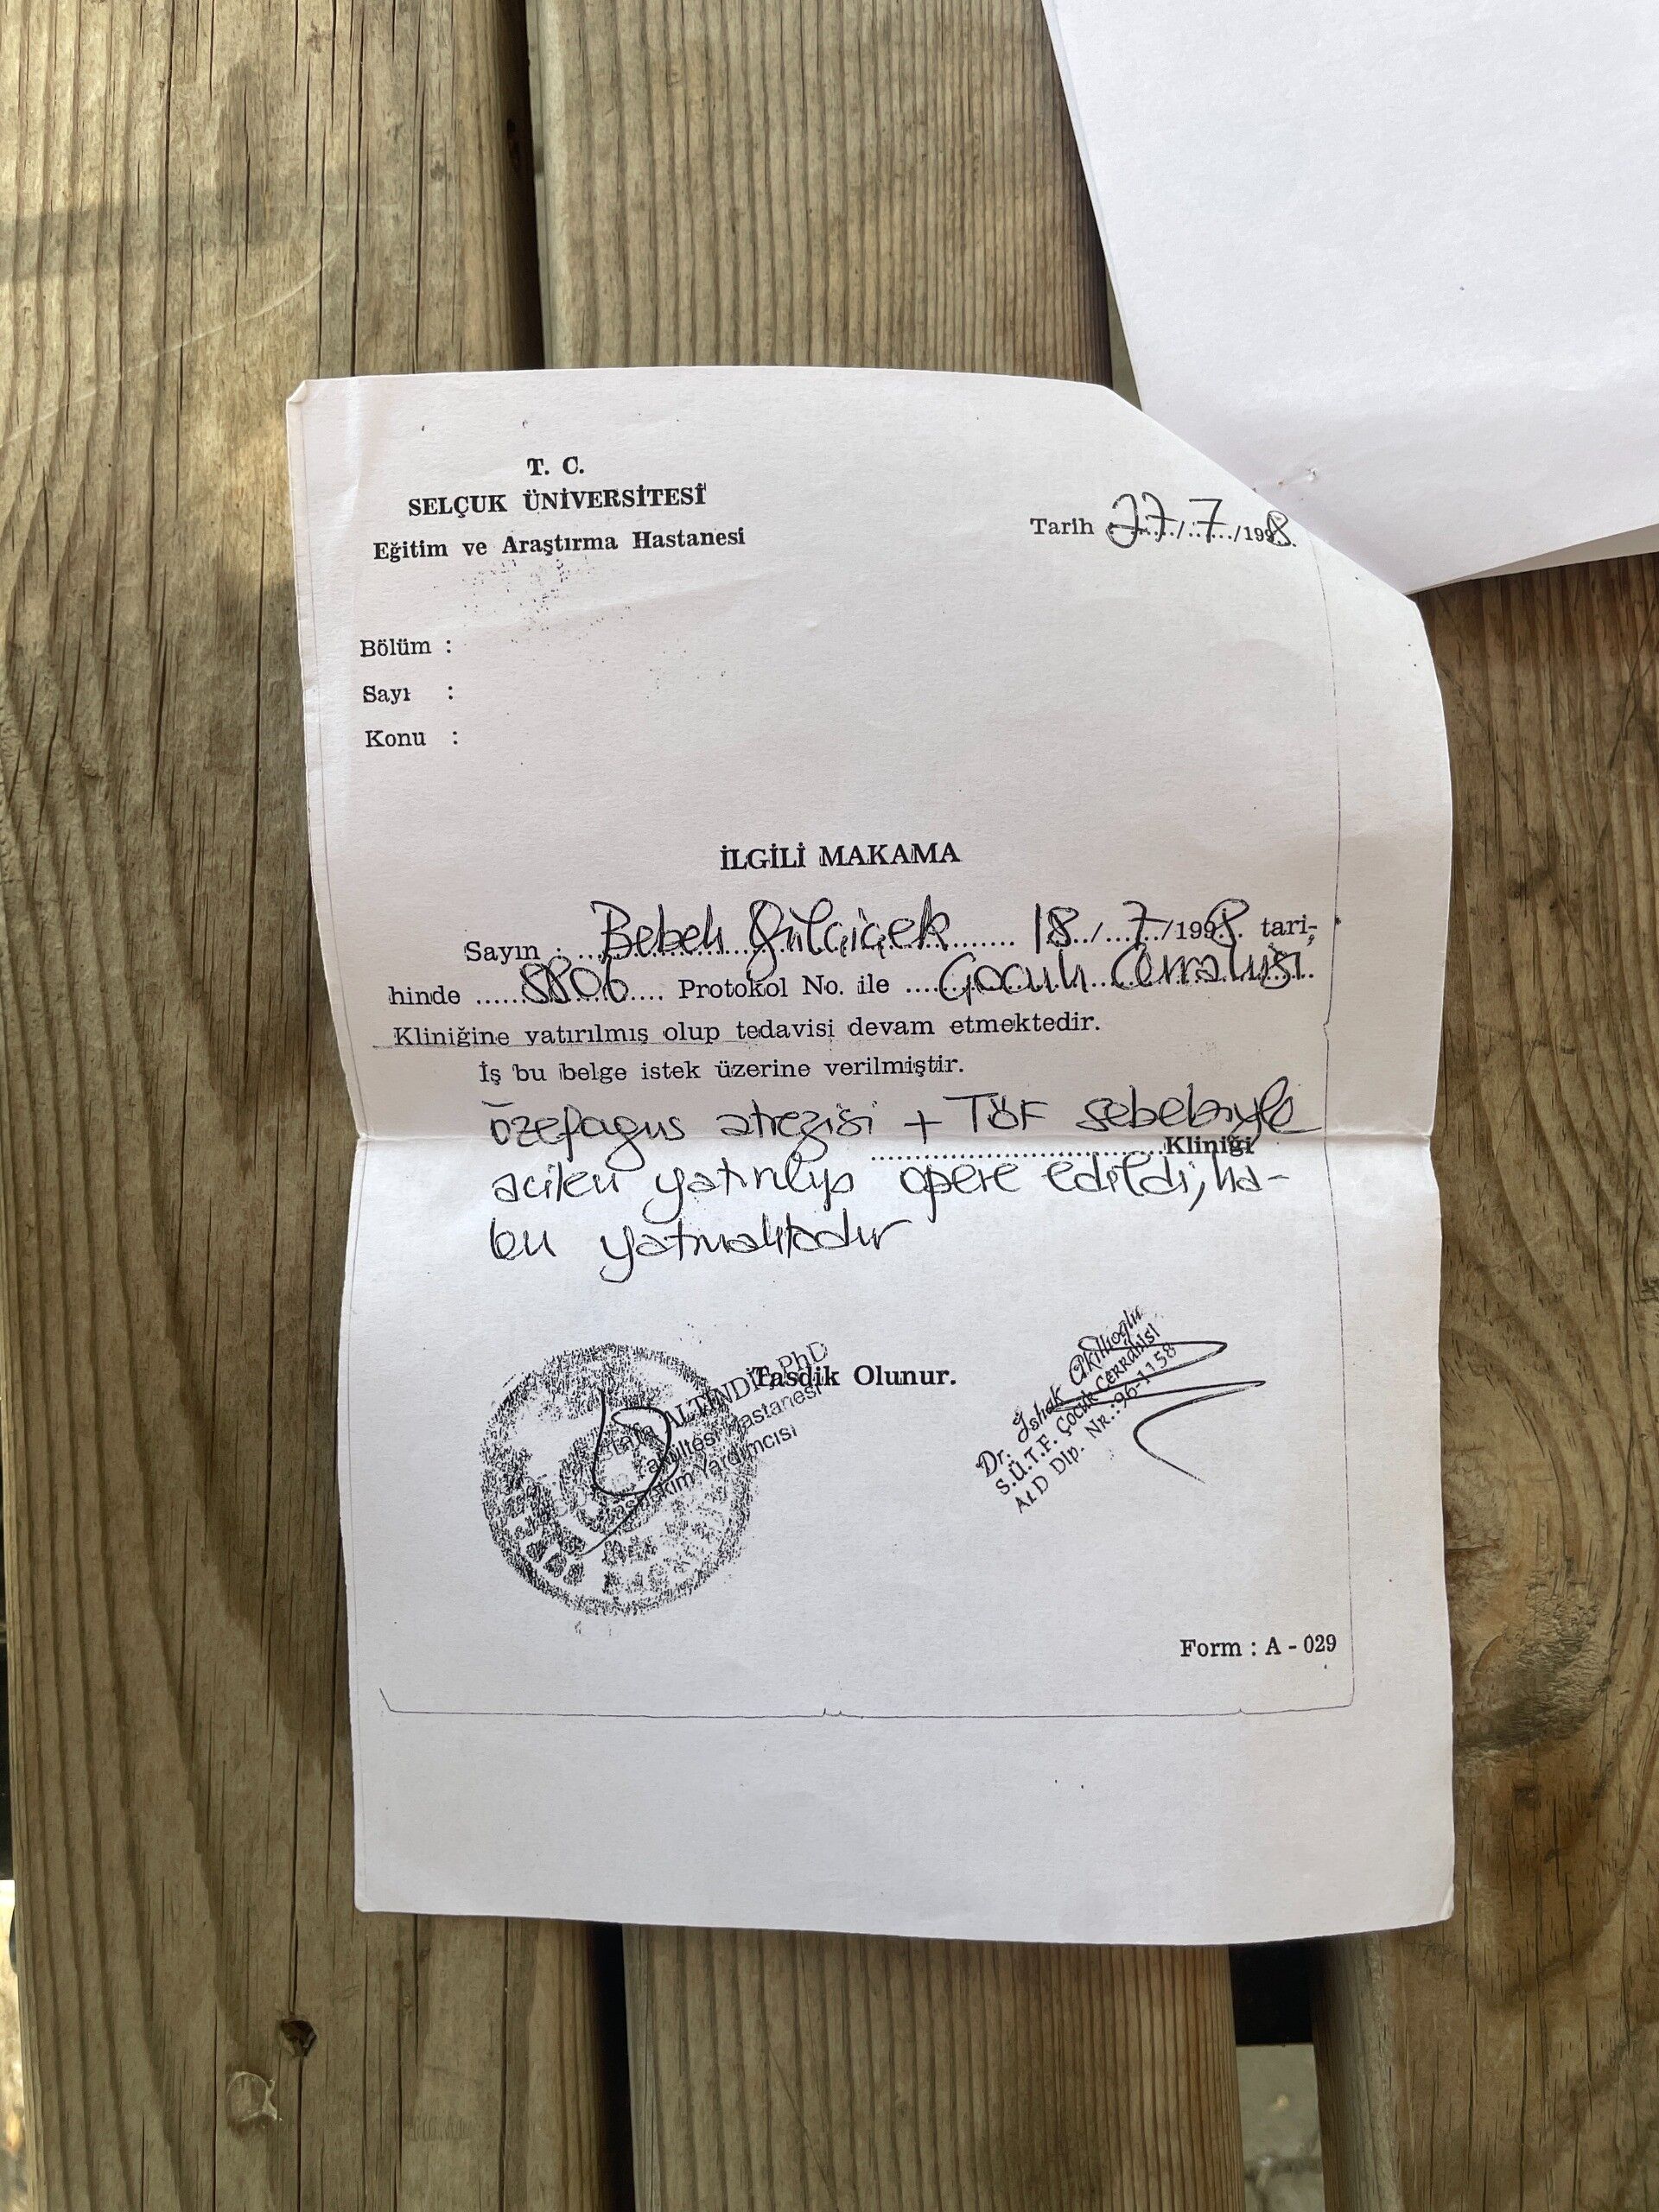 T. C.
SELÇUK ÜNİVERSİTESİ
Eğitim ve Araştırma Hastanesi
Tarih 27/7/1998.
Bölüm :
Sayı :
Konu :
İLGİLİ MAKAMA
Sayın : Bebek Gülçiçek 18/7/1998. tari-
hinde 8806 Protokol No. ile Çocuk Cerrahisi
Kliniğine yatırılmış olup tedavisi devam etmektedir.
İş bu belge istek üzerine verilmiştir.
özefagus atrezisi + TÖF sebebiyle
Kliniği
acilen yatırılıp opere edildi, ha-
len yatmaktadır
Tasdik Olunur.
ALTINDİŞ, PhD
Fakültesi Hastanesi
Başhekim Yardımcısı
Dr. İshak Akıllıoğlu
S.Ü.T.F. Çocuk Cerrahisi
A&D Dip. Nr.:96-1158
Form : A - 029